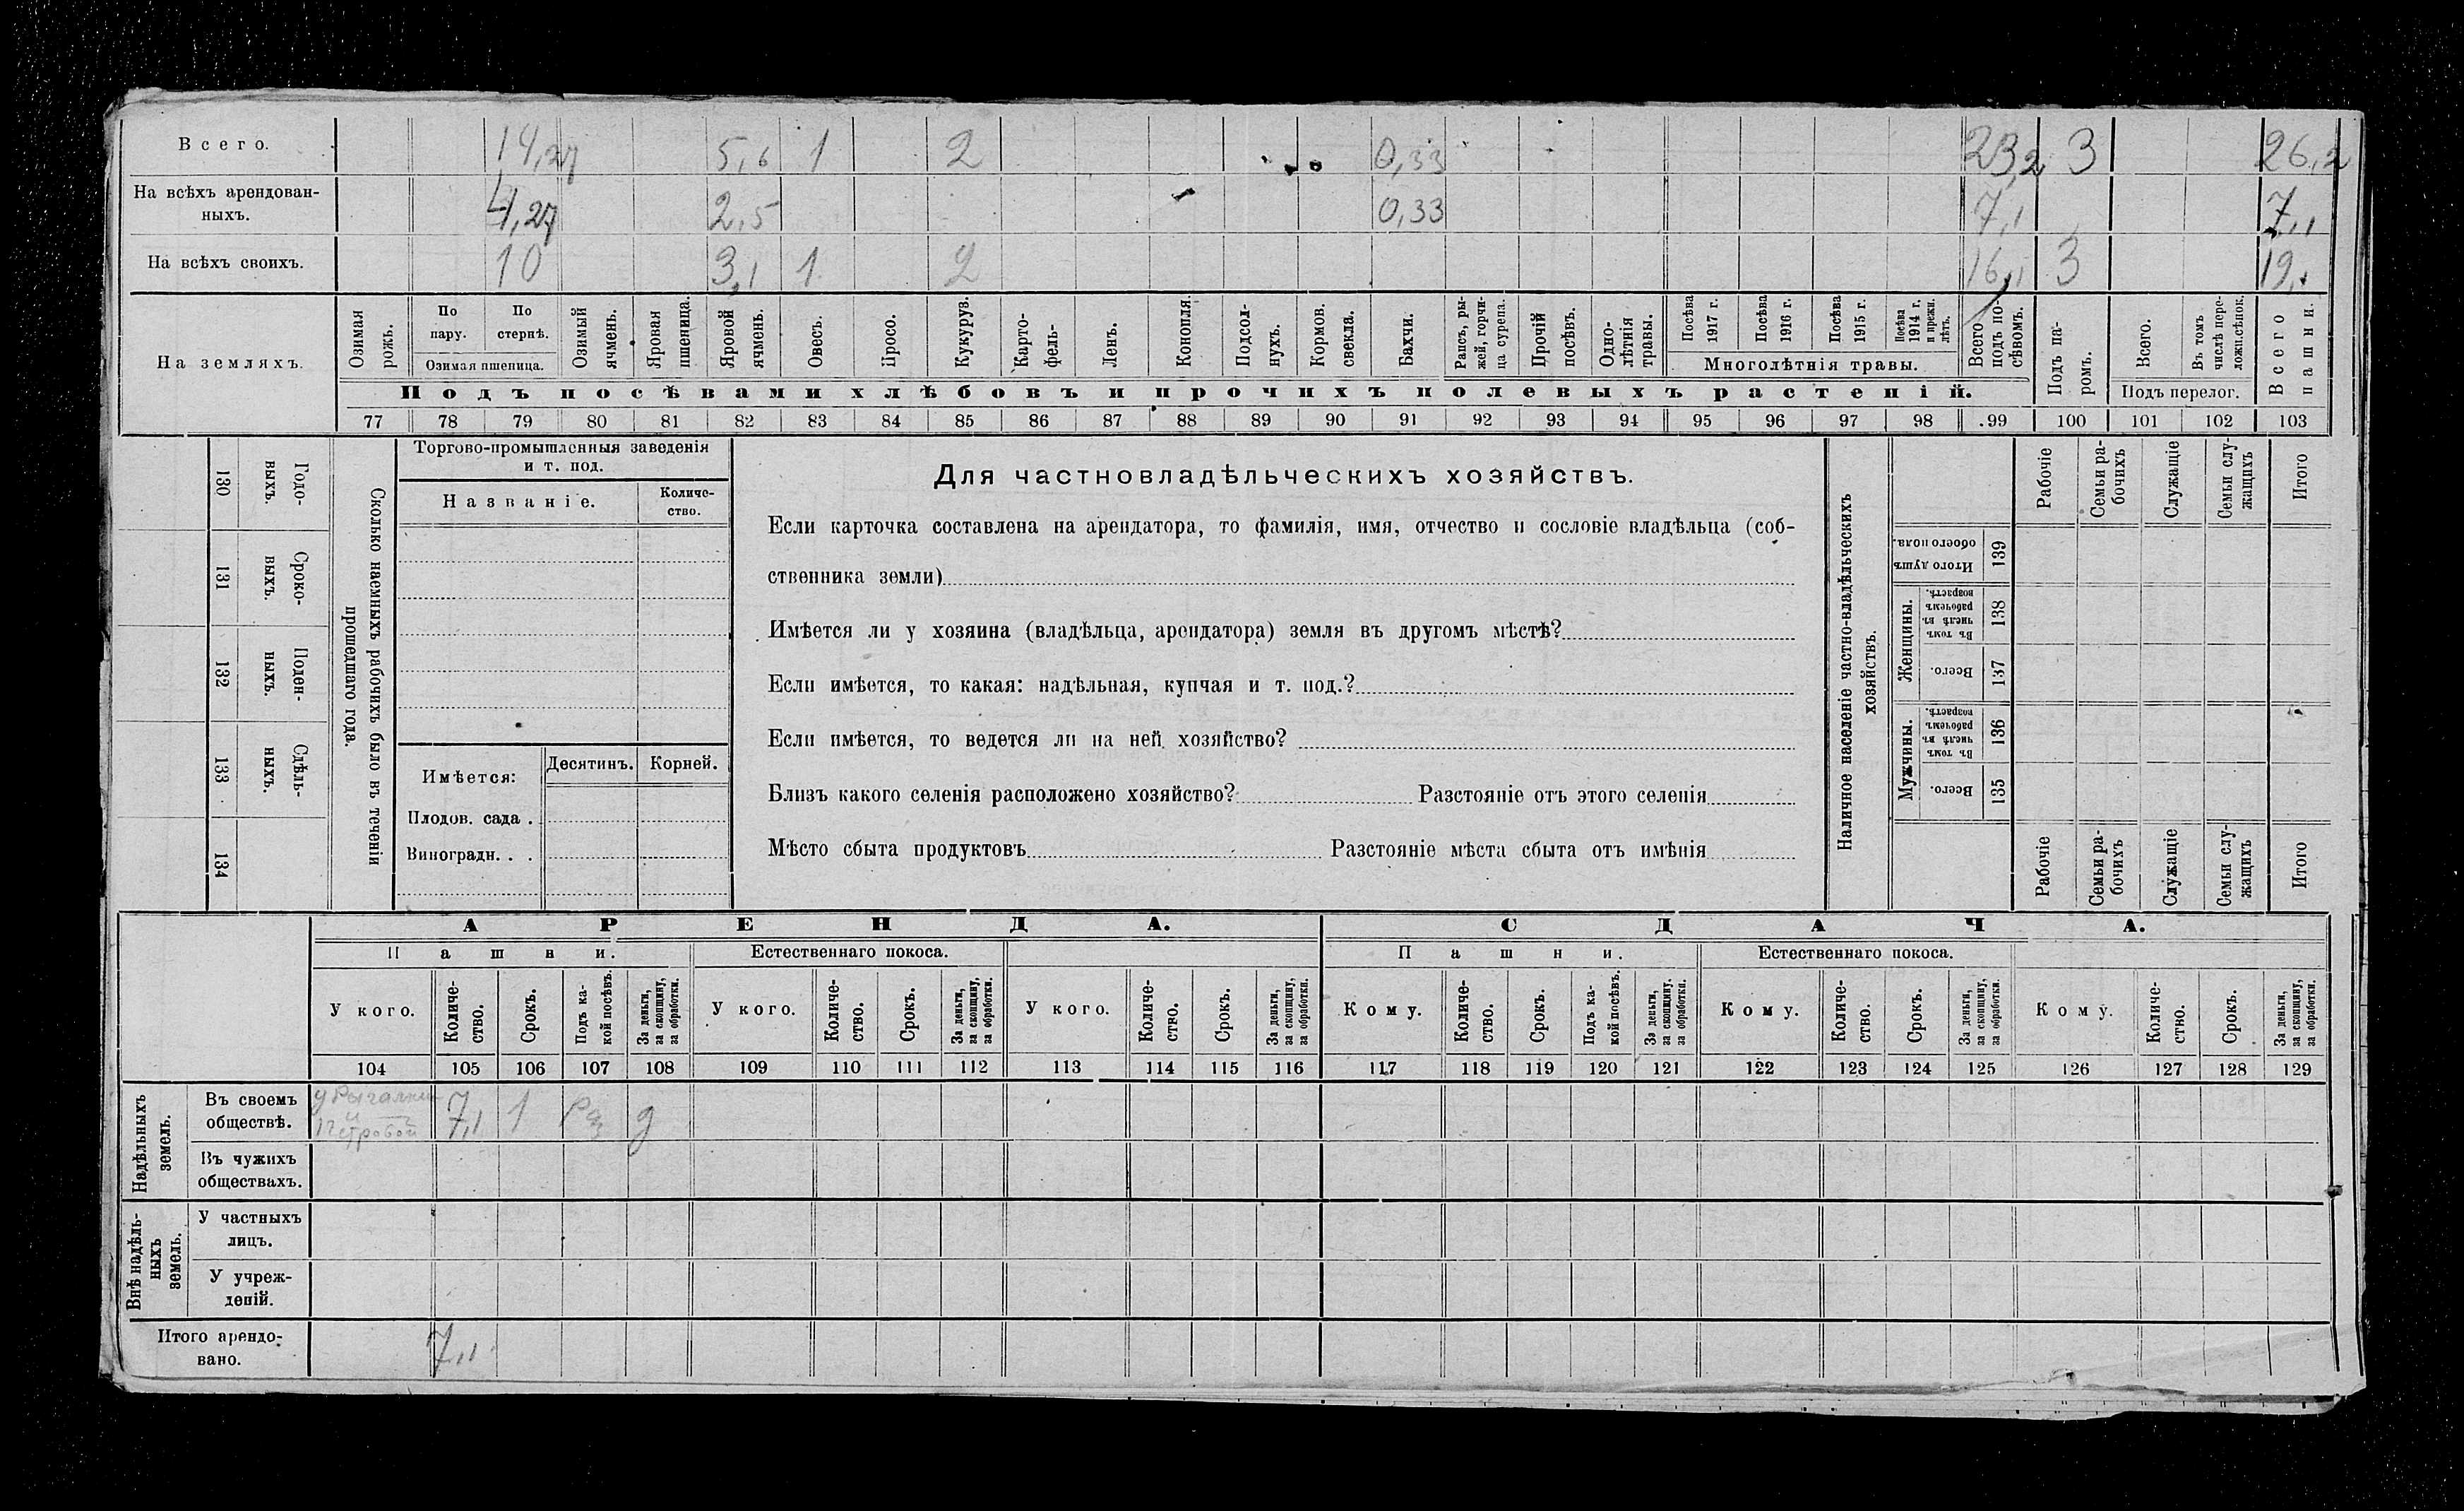 Всего. 14,27 5,6 1 2 0,33 23,2 3 26,2
На всѣхъ арендован-
ныхъ. 4,27 2,5 0,33 7,1 7,1
На всѣхъ своихъ. 10 3,1 1 2 16,1 3 19,1
На земляхъ.
Озимая рожь.
По пару.
По стернѣ.
Озимая пшеница.
Озимый ячмень.
Яровая пшеница.
Яровой ячмень.
Овесъ.
Просо.
Кукуруз.
Карто-
фель-
Ленъ.
Конопля.
Подсол-
нухъ.
Кормов. свекла.
Бахчи.
Рапсъ, ры-
жей, горчи-
ца сурепа.
Прочій посѣвъ.
Одно-
лѣтнія травы.
Посѣва 1917 г.
Посѣва 1916 г.
Посѣва 1915 г.
Посѣва 1914 г. и прежн. лѣтъ.
Многолѣтнія травы.
Всего подъ по-
сѣвомъ.
Подъ па-
ромъ.
Всего.
Въ томъ числѣ пере-
ложн.сѣнок.
Подъ перелог.
Всего пашни.
Подъ посѣвами хлѣбовъ и прочихъ полевыхъ растеній.
77 78 79 80 81 82 83 84 85 86 87 88 89 90 91 92 93 94 95 96 97 98 99 100 101 102 103
Годо-
выхъ.
130
Сроко-
выхъ.
131
Поден-
ныхъ.
132
Сдѣль-
ныхъ.
133
134
Сколько наемныхъ рабочихъ было въ теченіи
прошедшаго года.
Торгово-промышленныя заведенія
и т. под.
Названіе.
Количе-
ство.
Имѣется:
Десятинъ. Корней.
Плодов. сада .
Виноградн. . .
Для частновладѣльческихъ хозяйствъ.
Если карточка составлена на арендатора, то фамилія, имя, отчество и сословіе владѣльца (соб-
ственника земли)
Имѣется ли у хозяина (владѣльца, арендатора) земля въ другомъ мѣстѣ?
Если имѣется, то какая: надѣльная, купчая и т. под.?
Если имѣется, то ведется ли на ней хозяйство?
Близъ какого селенія расположено хозяйство? Разстояніе отъ этого селенія
Мѣсто сбыта продуктовъ Разстояніе мѣста сбыта отъ имѣнія
Наличное населеніе частно-владѣльческихъ
хозяйствъ.
Рабочіе
Семьи ра-
бочихъ
Служащіе
Семьи слу-
жащихъ
Итого
Итого душъ обоего пола.
139
Женщины.
Въ томъ числѣ въ рабочемъ возрастѣ.
138
Всего.
137
Мужчины.
Въ томъ числѣ въ рабочемъ возрастѣ.
136
Всего.
135
Рабочіе
Семьи ра-
бочихъ
Служащіе
Семьи слу-
жащихъ
Итого
АРЕНДА. СДАЧА.
Пашни. Естественнаго покоса. Пашни. Естественнаго покоса.
У кого.
Количе-
ство.
Срокъ.
Подъ ка-
кой посѣвъ.
За деньги, за скопщину, за обработки.
У кого.
Количе-
ство.
Срокъ.
За деньги, за скопщину, за обработки.
У кого.
Количе-
ство.
Срокъ.
За деньги, за скопщину, за обработки.
Кому.
Количе-
ство.
Срокъ.
Подъ ка-
кой посѣвъ.
За деньги, за скопщину, за обработки.
Кому.
Количе-
ство.
Срокъ.
За деньги, за скопщину, за обработки.
Кому.
Количе-
ство.
Срокъ.
За деньги, за скопщину, за обработки.
104 105 106 107 108 109 110 111 112 113 114 115 116 117 118 119 120 121 122 123 124 125 126 127 128 129
Надѣльныхъ земель.
Въ своемъ
обществѣ. 7,1 1 д
Петровой
Въ чужихъ
обществахъ.
Внѣ надѣль-
ныхъ земель.
У частныхъ
лицъ.
У учреж-
деній.
Итого арендо-
вано. 7,1